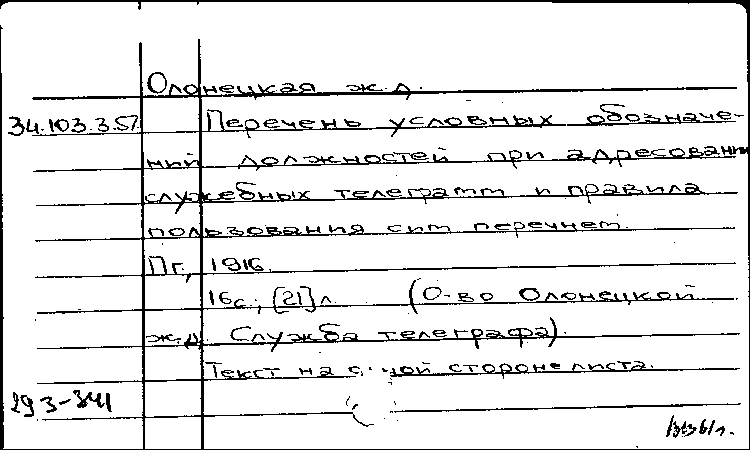 Олонецкая ж.д.
34.103.3.57 Перечень условных обозначе-
ний должностей при адресовании
служебных телеграмм и правила
пользования сим перечнем.
Пг., 1916.
16с.; [21]л. (О-во Олонецкой
ж.д. Служба телеграфа).
Текст на одной стороне листа.
293-341